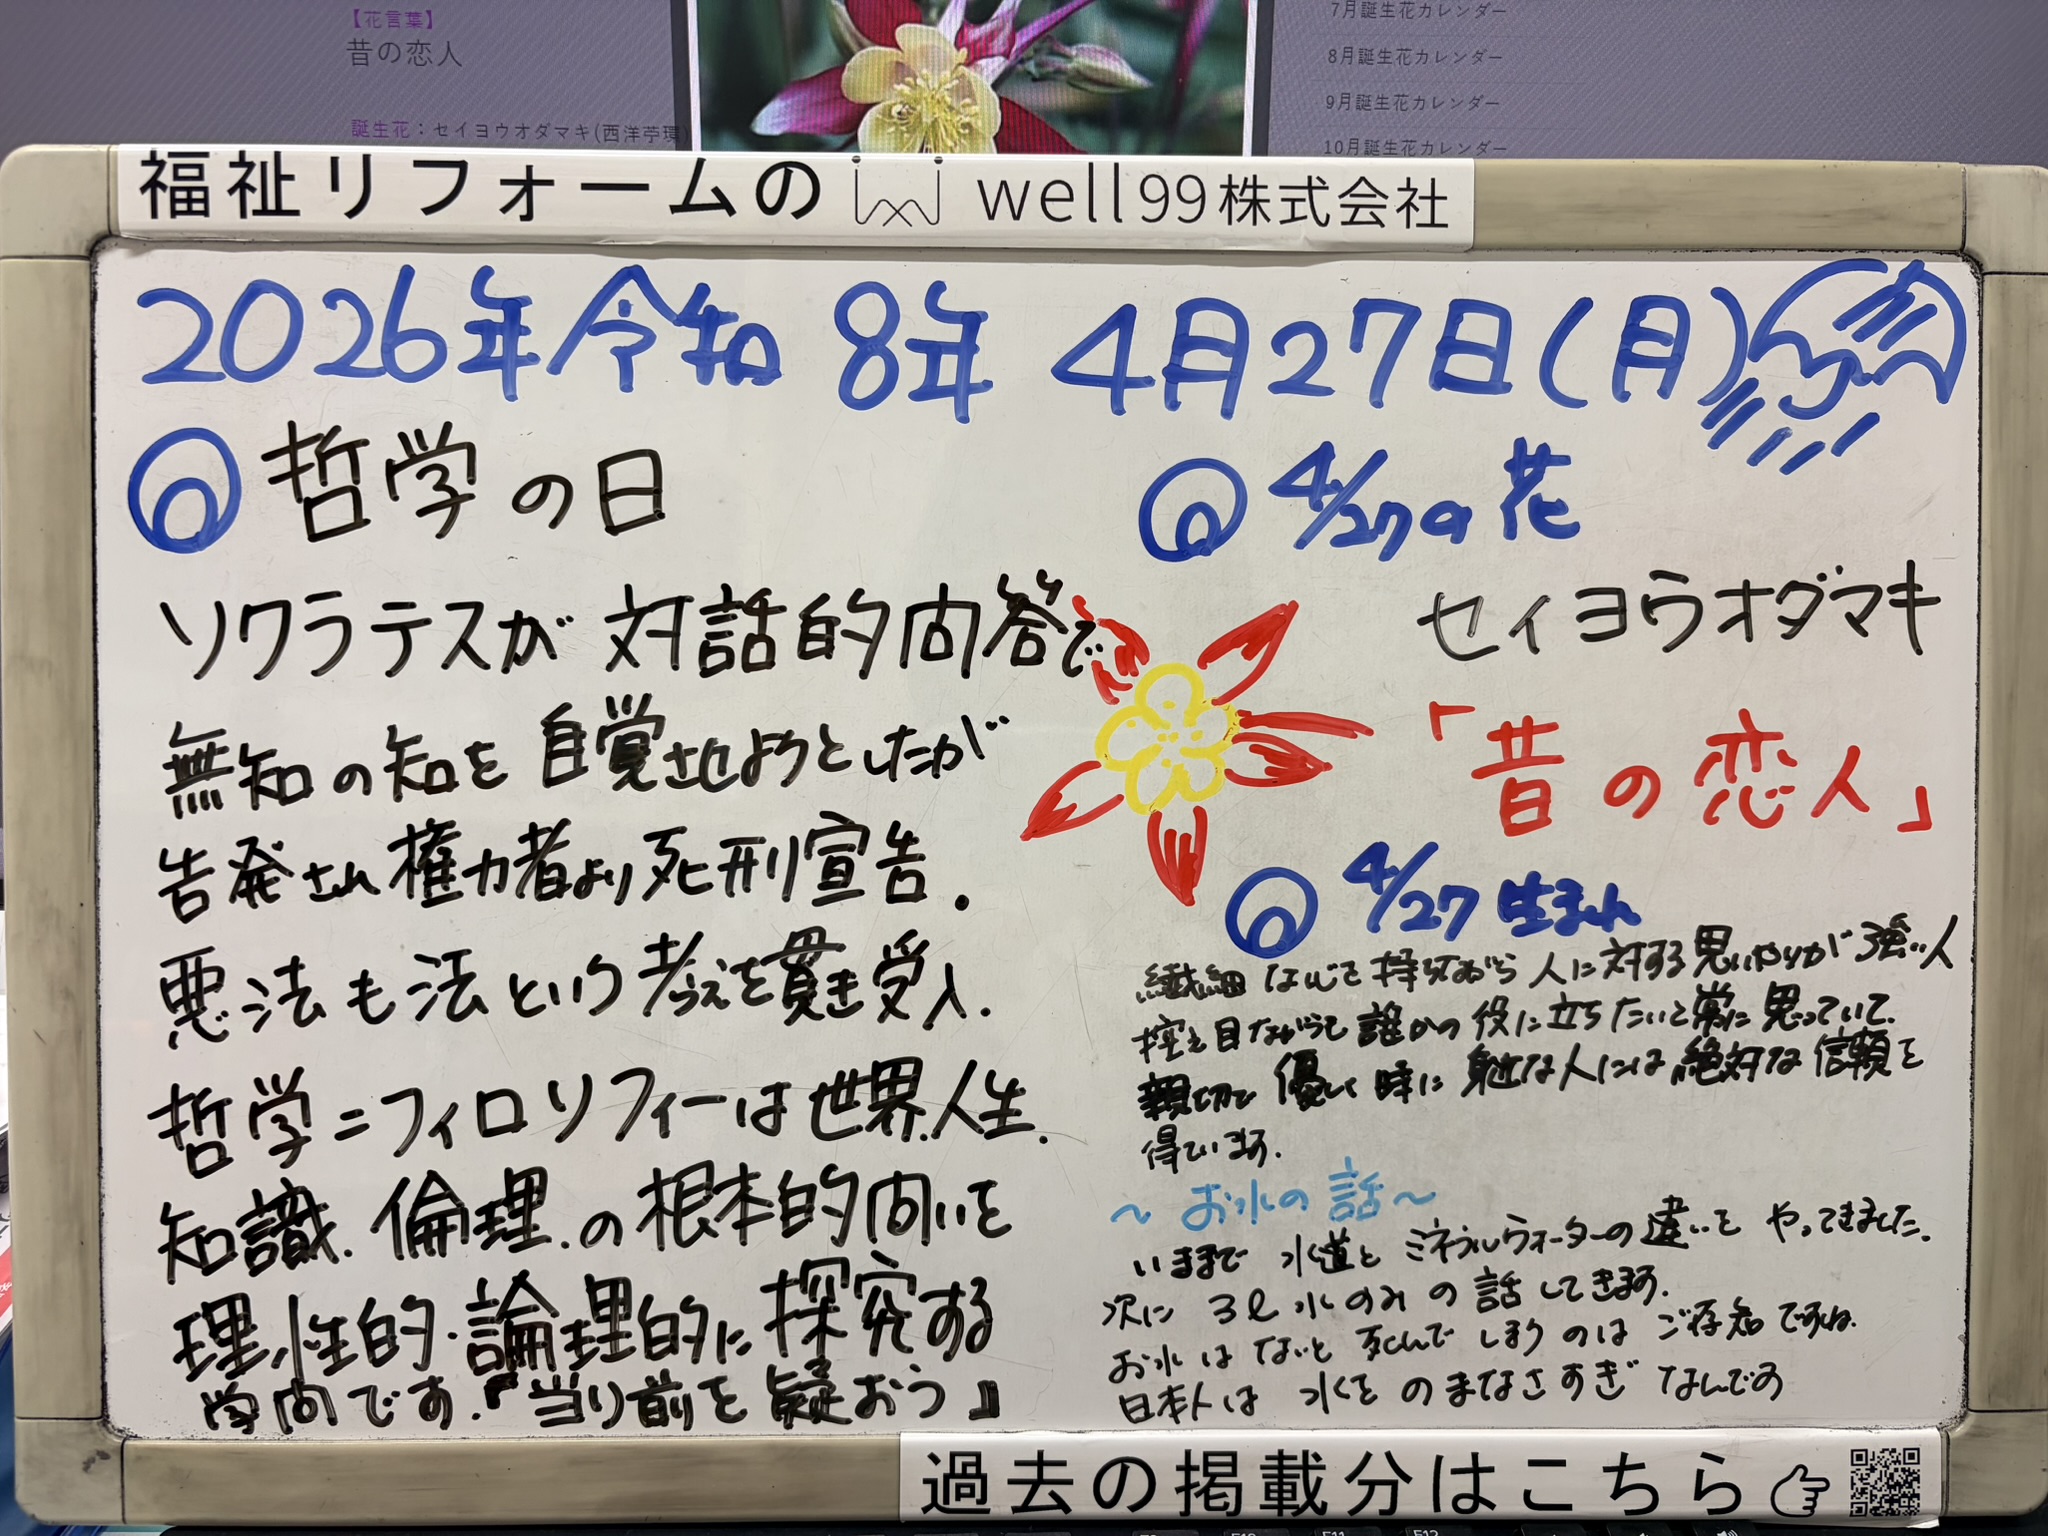 【花言葉】
昔の恋人
誕生花：セイヨウオダマキ(西洋苧環)
7月誕生花カレンダー
8月誕生花カレンダー
9月誕生花カレンダー
10月誕生花カレンダー
福祉リフォームの well99株式会社
2026年令和8年 4月27日(月)
哲学の日
ソクラテスが対話的問答で
無知の知を自覚させようとしたが
告発され権力者より死刑宣告.
悪法も法という考えを貫き受入.
哲学=フィロソフィーは世界.人生.
知識.倫理.の根本的問いを
理性的・論理的に探究する
学問です.『当り前を疑おう』
4/27の花
セイヨウオダマキ
「昔の恋人」
4/27生まれ
繊細な心を持ちながら人に対する思いやりが強い人
控え目ながらも誰かの役に立ちたいと常に思っていて.
親切で優しく時に身近な人には絶対な信頼を
得ています.
～お水の話～
いままで水道とミネラルウォーターの違いをやってきました.
次に3ℓ水のみの話してきます.
お水はないと死んでしまうのはご存知ですね.
日本人は水をのまなさすぎなんです
過去の掲載分はこちら